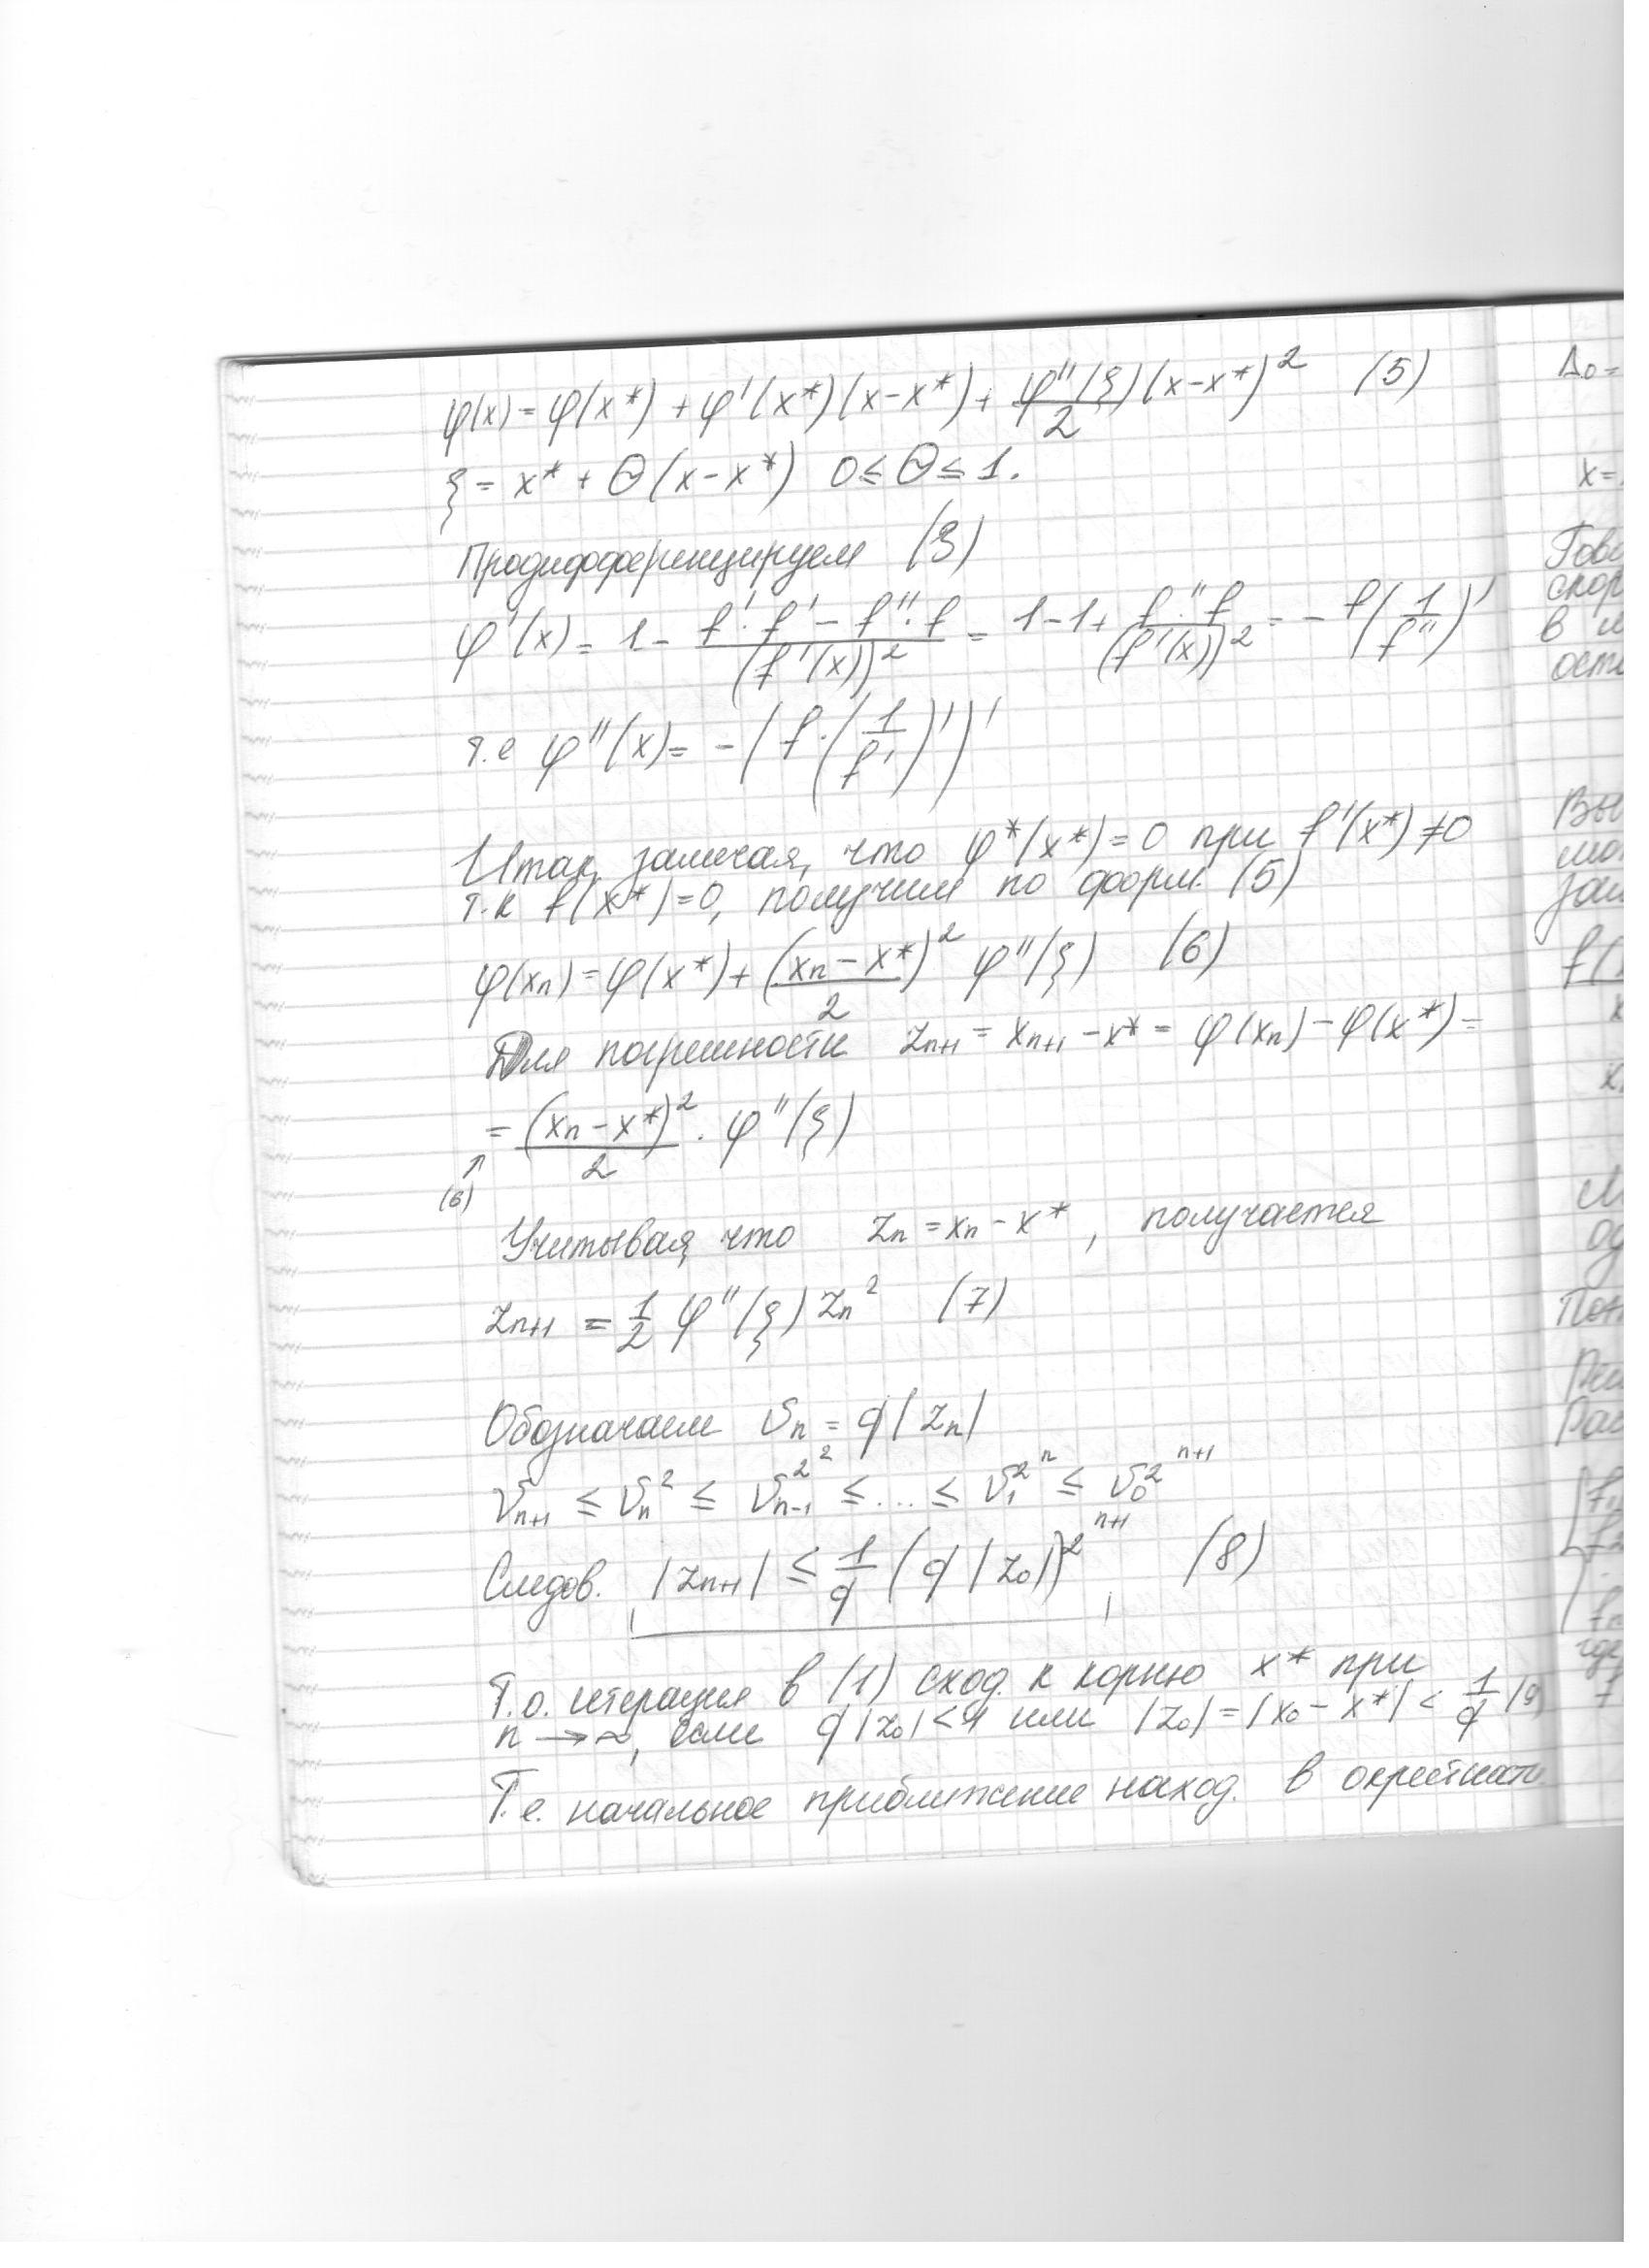 φ(x) = φ(x*) + φ'(x*)(x-x*) + φ''(ξ)/2 (x-x*)² (5)
ξ = x* + Θ(x-x*) 0 ≤ Θ ≤ 1.
Продифференцируем (3)
φ'(x) = 1 - (f'·f' - f''·f)/(f'(x))² = 1-1+ (f''·f)/(f'(x))² = - f(1/f'')'
т.е φ''(x) = -(f·(1/f')')'
Итак, замечая, что φ*(x*) = 0 при f'(x*) ≠ 0
т.к f(x*) = 0, получим по форм. (5)
φ(xₙ) = φ(x*) + (xₙ - x*)²/2 φ''(ξ) (6)
Для погрешности zₙ₊₁ = xₙ₊₁ - x* = φ(xₙ) - φ(x*) =
= (xₙ - x*)²/2 · φ''(ξ)
↑
(6)
Учитывая, что zₙ = xₙ - x*, получается
zₙ₊₁ = 1/2 φ''(ξ) zₙ² (7)
Обозначаем υₙ = q|zₙ|
υₙ₊₁ ≤ υₙ² ≤ υₙ₋₁^2^2 ≤ ... ≤ υ₁^2^n ≤ υ₀^2^(n+1)
Следов. |zₙ₊₁| ≤ 1/q (q|z₀|)^2^(n+1) (8)
Т.о. итерация в (1) сход. к корню x* при
n → ∞, если q|z₀| < 1 или |z₀| = |x₀ - x*| < 1/q (9)
Т.е. начальное приближение наход. в окрестности
Δ₀ =
x =
в
Вы
f(
x